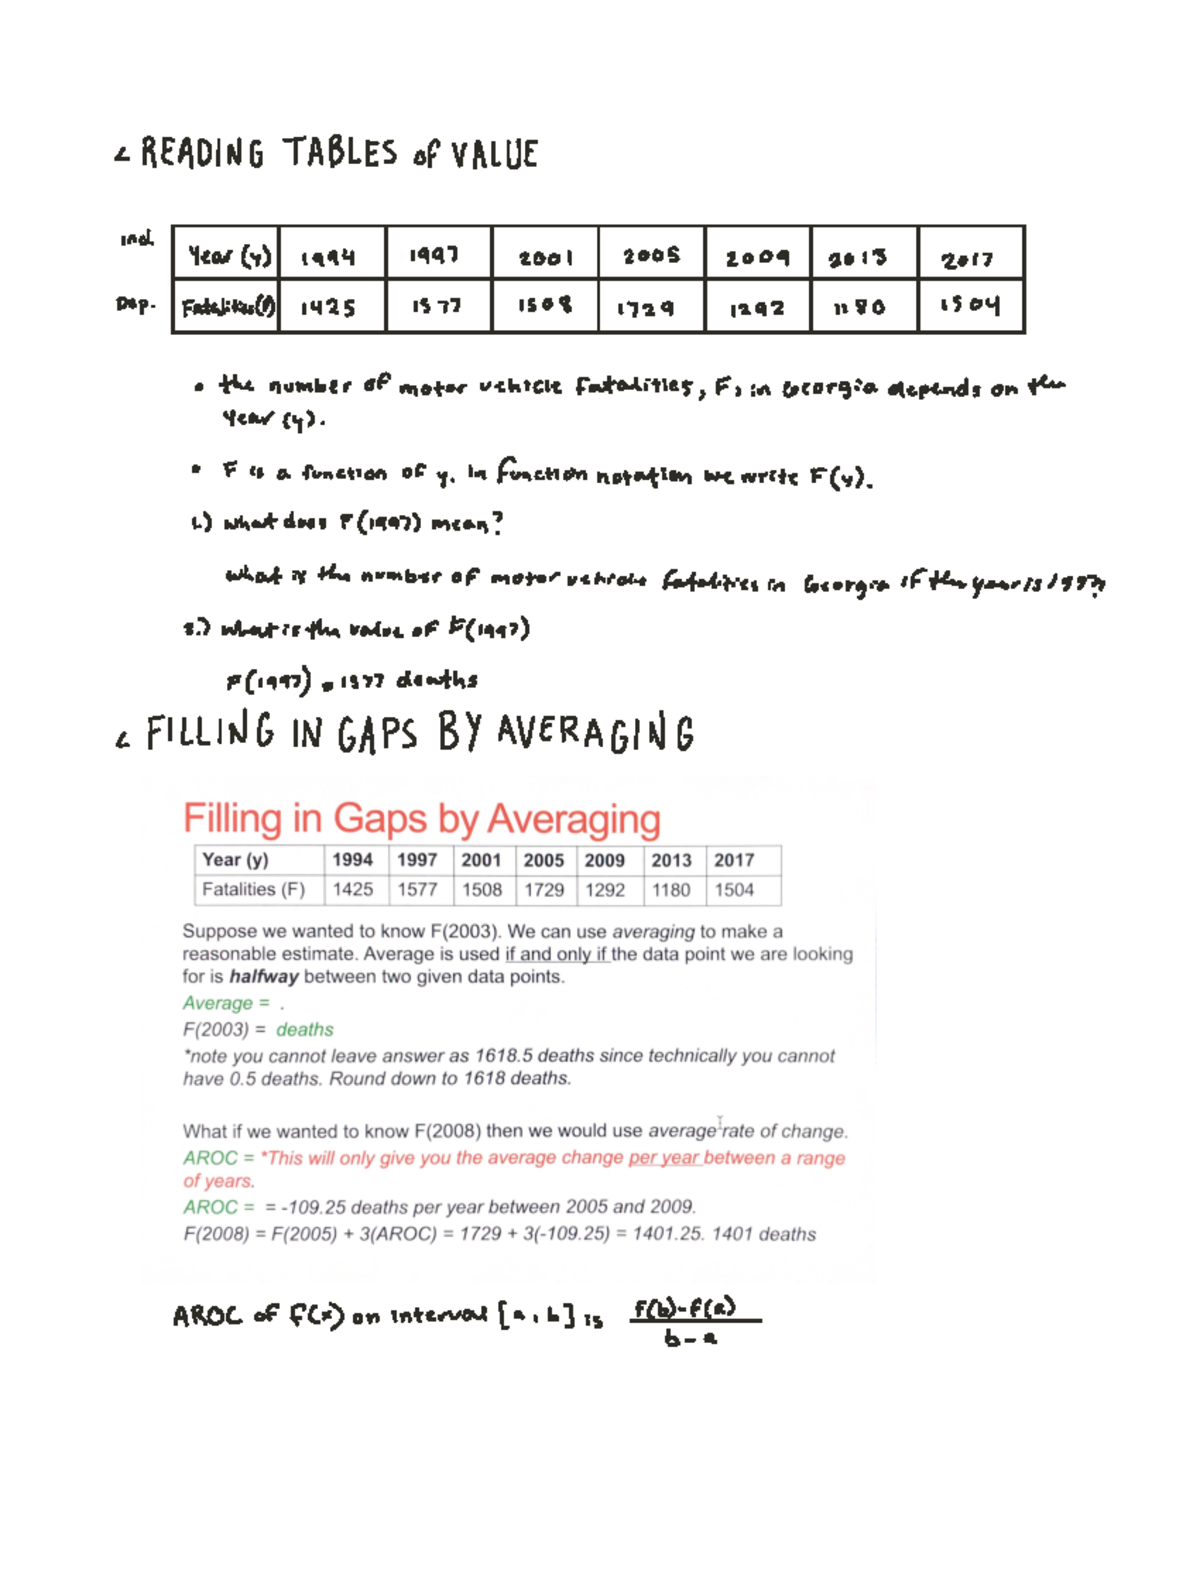 READING TABLES of VALUE
ind.
Year (y) 1994 1997 2001 2005 2009 2013 2017
Dep. Fatalities(f) 1425 1577 1508 1729 1292 1180 1504
• the number of motor vehicle fatalities, F, in Georgia depends on the
Year (y).
• F is a function of y. In function notation we write F(y).
1.) what does F(1997) mean?
what is the number of motor vehicle fatalities in Georgia if the year is 1997?
2.) what is the value of F(1997)
F(1997) = 1577 deaths
FILLING IN GAPS BY AVERAGING
Filling in Gaps by Averaging
Year (y) 1994 1997 2001 2005 2009 2013 2017
Fatalities (F) 1425 1577 1508 1729 1292 1180 1504
Suppose we wanted to know F(2003). We can use averaging to make a
reasonable estimate. Average is used if and only if the data point we are looking
for is halfway between two given data points.
Average = .
F(2003) = deaths
*note you cannot leave answer as 1618.5 deaths since technically you cannot
have 0.5 deaths. Round down to 1618 deaths.
What if we wanted to know F(2008) then we would use average rate of change.
AROC = *This will only give you the average change per year between a range
of years.
AROC = = -109.25 deaths per year between 2005 and 2009.
F(2008) = F(2005) + 3(AROC) = 1729 + 3(-109.25) = 1401.25. 1401 deaths
AROC of f(x) on interval [a, b] is f(b)-f(a)
b-a